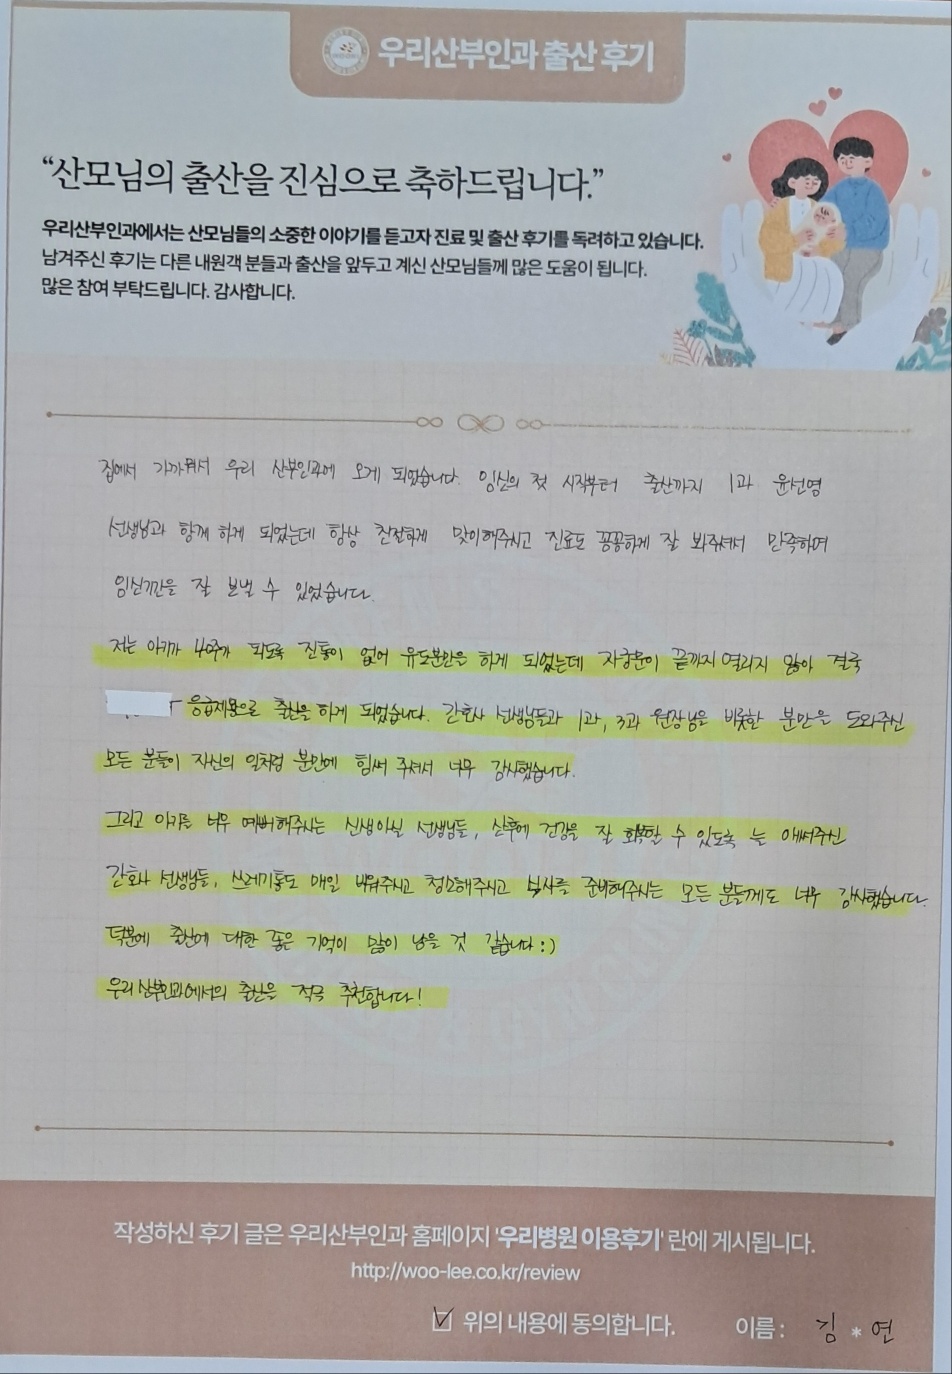 우리산부인과 출산 후기
“산모님의 출산을 진심으로 축하드립니다.”
우리산부인과에서는 산모님들의 소중한 이야기를 듣고자 진료 및 출산 후기를 독려하고 있습니다.
남겨주신 후기는 다른 내원객 분들과 출산을 앞두고 계신 산모님들께 많은 도움이 됩니다.
많은 참여 부탁드립니다. 감사합니다.
집에서 가까워서 우리 산부인과에 오게 되었습니다. 임신의 첫 시작부터 출산까지 1과 윤선영
선생님과 함께 하게 되었는데 항상 친절하게 맞이해주시고 진료도 꼼꼼하게 잘 봐주셔서 만족하며
임신기간을 잘 보낼 수 있었습니다.
저는 아기가 40주가 되도록 진통이 없어 유도분만을 하게 되었는데 자궁문이 끝까지 열리지 않아 결국
응급제왕으로 출산을 하게 되었습니다. 간호사 선생님들과 1과, 3과 원장님을 비롯한 분만을 도와주신
모든 분들이 자신의 일처럼 분만에 힘써 주셔서 너무 감사했습니다.
그리고 아기를 너무 예뻐해주시는 신생아실 선생님들, 산후에 건강을 잘 회복할 수 있도록 늘 애써주신
간호사 선생님들, 쓰레기통도 매일 비워주시고 청소해주시고 식사를 준비해주시는 모든 분들께도 너무 감사했습니다.
덕분에 출산에 대한 좋은 기억이 많이 남을 것 같습니다 :)
우리산부인과에서의 출산은 적극 추천합니다!
작성하신 후기 글은 우리산부인과 홈페이지 '우리병원 이용후기' 란에 게시됩니다.
http://woo-lee.co.kr/review
위의 내용에 동의합니다. 이름 : 김 * 연